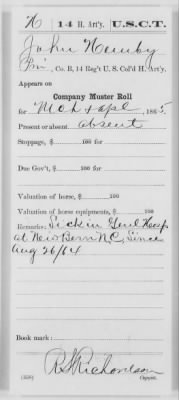 N 14 H. Art'y. U.S.C.T.
John Nemby
Pvt, Co. B, 14 Reg't U. S. Col'd H. Art'y.
Appears on
Company Muster Roll
for Mch & Apl, 1865
Present or absent absent
Stoppage, $ 100 for
Due Gov't, $ 100 for
Valuation of horse, $ 100
Valuation of horse equipments, $ 100
Remarks: Sick in Genl Hosp
at New Bern N.C. Since
Aug 26/64
Book mark:
R S Richardson
(358) Copyist.